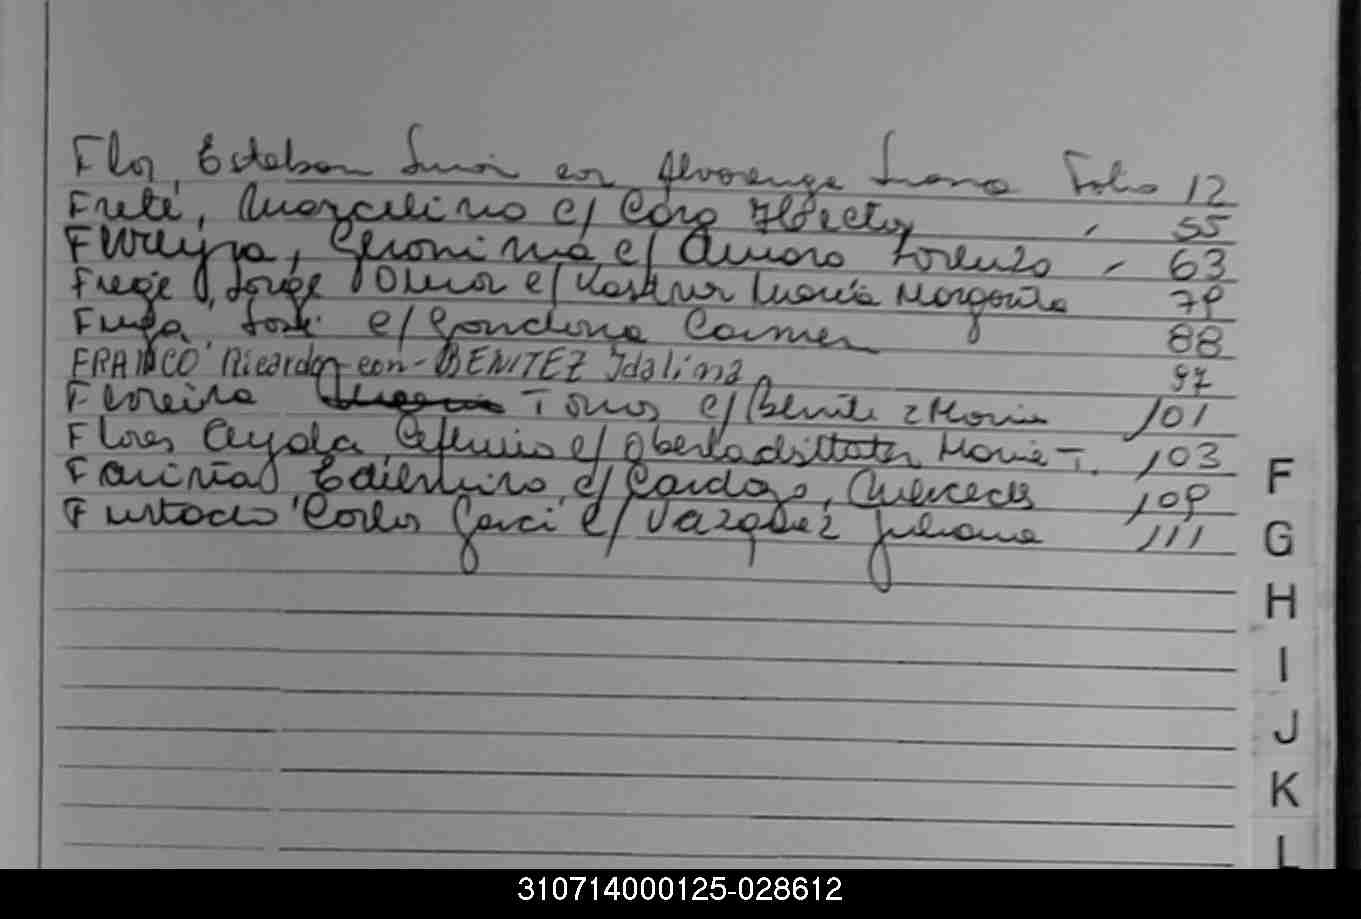 Flor, Esteban con Alvarenga Juana Folio 12
Frete, Marcelino c/ Caro Hector " 55
Ferreyra, Geronima c/ Amaro Lorenzo " 63
Frege, Jorge Omar c/ Kastner María Margarita 79
Fuga, José c/ Gondona Carmen 88
FRANCO Ricardo con BENITEZ Idalina 97
Ferreira Tomas c/ Benitez Maria 101
Flores Ayala, Ceferino c/ Oberladstter Maria T. 103
Farinas Edilmiro, c/ Cardozo, Mercedes 109
Furtado Carlos Garci c/ Vazquez Juliana 111
F
G
H
I
J
K
L
310714000125-028612